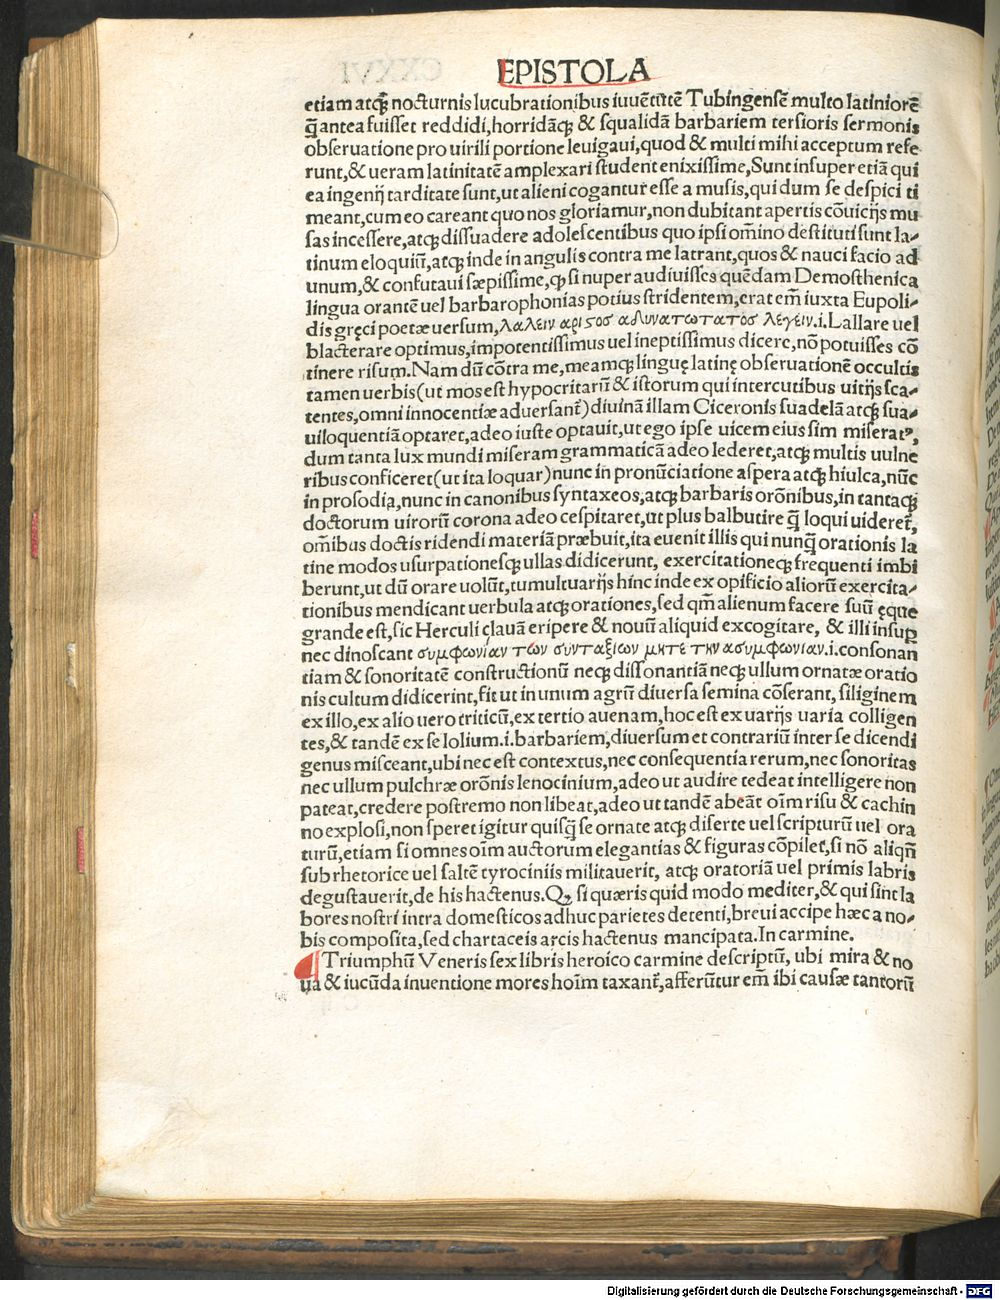 EPISTOLA
etiam atqꜣ nocturnis lucubrationibus iuuētutē Tubingensē multo latiniorē
q̄ antea fuisset reddidi, horridāqꜣ & squalidā barbariem tersioris sermonis
obseruatione pro uirili portione leuigaui, quod & multi mihi acceptum refe
runt, & ueram latinitatē amplexari student enixissime, Sunt insuper etiā qui
ea ingenij tarditate sunt, ut alieni cogantur esse a musis, qui dum se despici ti
meant, cum eo careant quo nos gloriamur, non dubitant apertis cōuicijs mu
sas incessere, atqꜣ dissuadere adolescentibus quo ipsi om̄ino destituti sunt la-
tinum eloquiū, atqꜣ inde in angulis contra me latrant, quos & nauci facio ad
unum, & confutaui sæpissime, ꝙ si nuper audiuisses quēdam Demosthenica
lingua orantē uel barbarophonias potius stridentem, erat em̄ iuxta Eupoli-
dis gręci poetæ uersum, λαλειν αριστος αδυνατωτατος λεγειν .i. Lallare uel
blacterare optimus, impotentissimus uel ineptissimus dicere, nō potuisses cō
tinere risum. Nam dū cōtra me, meamqꜣ linguę latinę obseruationē occultis
tamen uerbis (ut mos est hypocritarū & istorum qui intercutibus uitijs sca-
tentes, omni innocentiæ aduersant̄) diuinā illam Ciceronis suadelā atqꜣ sua-
uiloquentiā optaret, adeo iuste optauit, ut ego ipse uicem eius sim miseratꝰ,
dum tanta lux mundi miseram grammaticā adeo lederet, atqꜣ multis uulne
ribus conficeret (ut ita loquar) nunc in pronūciatione aspera atqꜣ hiulca, nūc
in prosodia, nunc in canonibus syntaxeos, atqꜣ barbaris orōnibus, in tantaqꜣ
doctorum uirorū corona adeo cespitaret, ut plus balbutire q̄ loqui uideret̄,
om̄ibus doctis ridendi materiā præbuit, ita euenit illis qui nunq̄ orationis la
tine modos usurpationesqꜣ ullas didicerunt, exercitationeqꜣ frequenti imbi
berunt, ut dū orare uolūt, tumultuarijs hinc inde ex opificio aliorū exercita-
tionibus mendicant uerbula atqꜣ orationes, sed qm̄ alienum facere suū ęque
grande est, sic Herculi clauā eripere & nouū aliquid excogitare, & illi insuꝑ
nec dinoscant συμφωνίαν των συνταξίων μητε την ασυμφωνίαν .i. consonan
tiam & sonoritatē constructionū neqꜣ dissonantiā neqꜣ ullum ornatæ oratio
nis cultum didicerint, fit ut in unum agrū diuersa semina cōserant, siliginem
ex illo, ex alio uero triticū, ex tertio auenam, hoc est ex uarijs uaria colligen
tes, & tandē ex se lolium .i. barbariem, diuersum et contrariū inter se dicendi
genus misceant, ubi nec est contextus, nec consequentia rerum, nec sonoritas
nec ullum pulchræ orōnis lenocinium, adeo ut audire tedeat intelligere non
pateat, credere postremo non libeat, adeo ut tandē abeāt oīm risu & cachin
no explosi, non speret igitur quisq̄ se ornate atqꜣ diserte uel scripturū uel ora
turū, etiam si omnes oīm auctorum elegantias & figuras cōpilet, si nō aliqn̄
sub rhetorice uel saltē tyrociniis militauerit, atqꜣ oratoriā uel primis labris
degustauerit, de his hactenus. Qꝫ si quæris quid modo mediter, & qui sint la
bores nostri intra domesticos adhuc parietes detenti, breui accipe hæc a no-
bis composita, sed chartaceis arcis hactenus mancipata. In carmine.
¶ Triumphū Veneris sex libris heroico carmine descriptū, ubi mira & no
ua & iucūda inuentione mores hoīm taxant̄, afferūtur em̄ ibi causæ tantorū
Digitalisierung gefördert durch die Deutsche Forschungsgemeinschaft - DFG